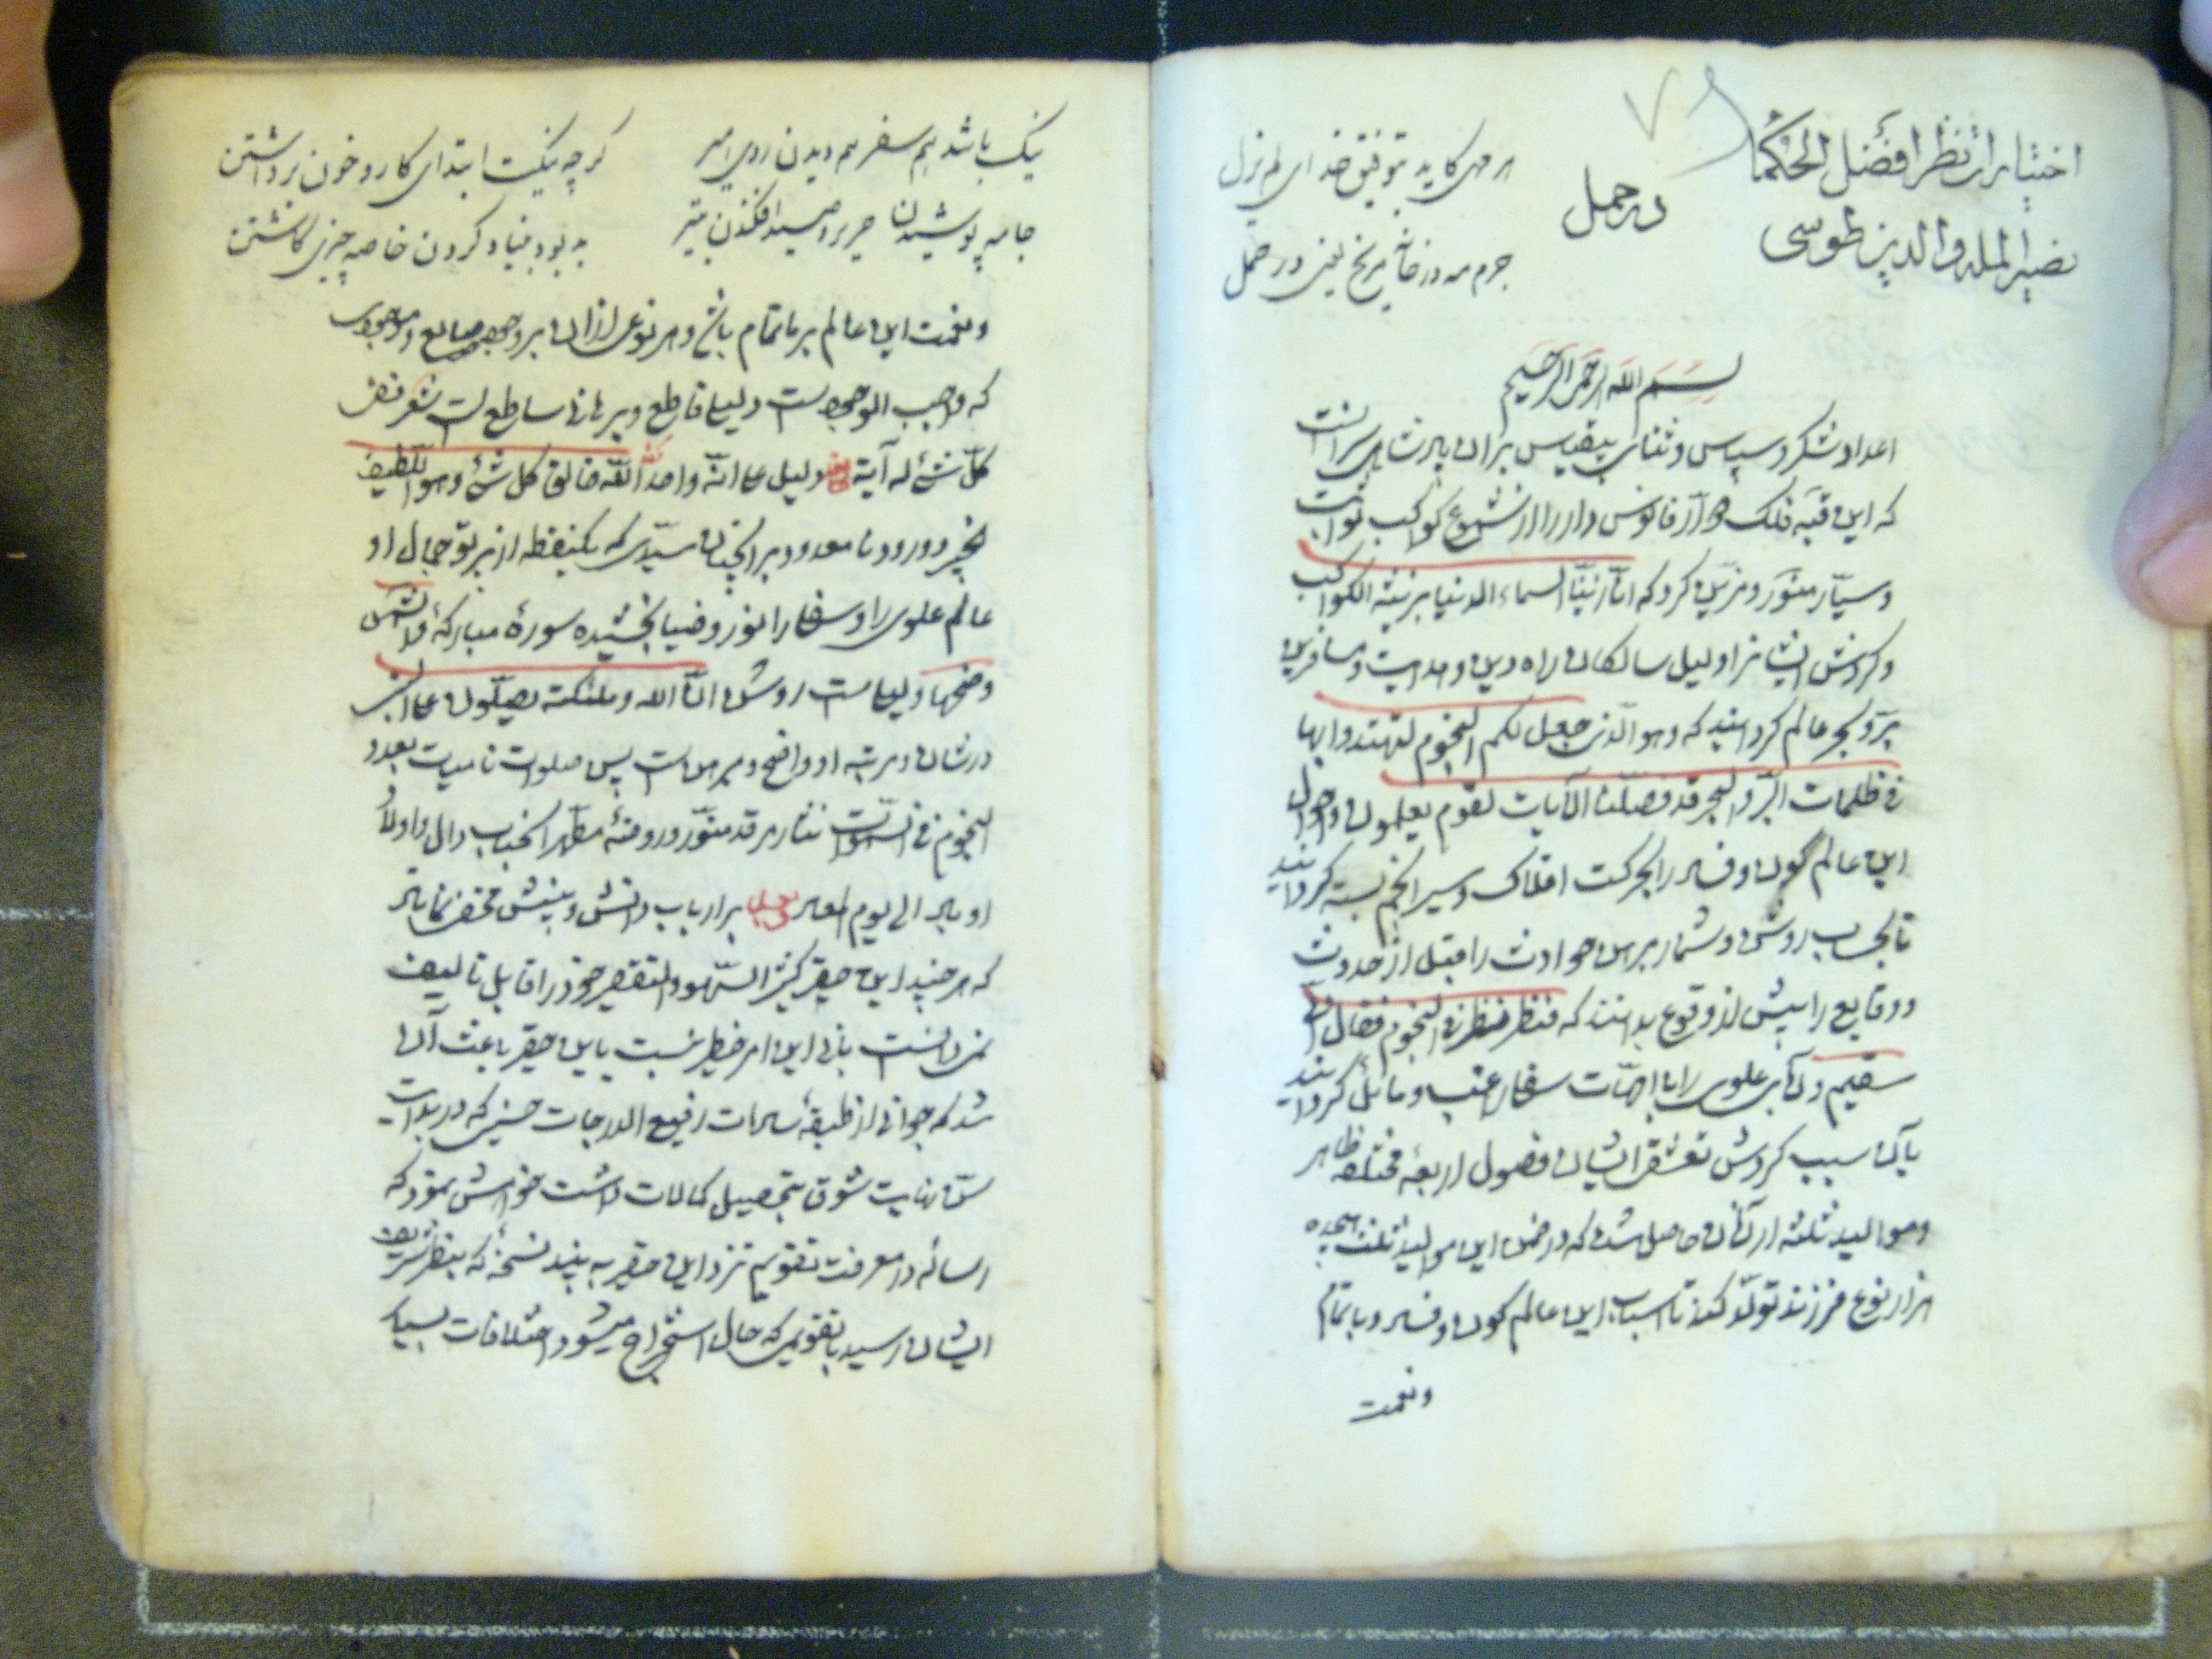 اختیارات نظر افضل الحکما
نصیر الملة والدین طوسی
در حمل
هر مهی کاید بتوفیق خدای لم یزل
جرم مه در خانه مریخ یعنی در حمل
بسم الله الرحمن الرحیم
اعداد شکر و سپاس و ثنای بیقیاس بران پادشاهی سزاست
که این قبه فلک دوار فانوس دار را از شموع کواکب ثوابت
و سیار منور و مزین کرد که انا زینا السماء الدنیا بزینة الکواکب
و کردش ایشانرا دلیل سالکان راه دین و هدایت و مسافرین
بر و بحر عالم کردانید که وهو الذی جعل لکم النجوم لتهتدوا بها
فی ظلمات البر والبحر قد فصلنا الآیات لقوم یعلمون و احوال
این عالم کون و فساد را بحرکت افلاک و سیر انجم بسته کردانید
تا بحساب روش و شمار هر یک حوادث را قبل از حدوث
و وقایع را پیش از وقوع بدانند که فنظر نظرة فی النجوم فقال انی
سقیم و آبای علوی را با امهات سفلی راغب و مائل کردانید
تا بآن سبب کردش تعشق ایشان فصول اربعه مختلفه ظاهر
و موالید ثلثه از آنان حاصل شد که در ضمن این موالید ثلث هجده
هزار نوع فرزند تولد کند تا اسباب این عالم کون و فساد و با تمام
و نعمت
نیک باشد هم سفر هم دیدن روی امیر
کرچه نیکست ابتدای کار و خون برداشتن
جامه پوشیدن حریر و صید افکندن بتیر
بد بود بنیاد کردن خاصه چیزی کاشتن
و نعمت این عالم بر ما تمام باشد و هر نوعی از آن بر وجود صانع و موجودی
که واجب الوجودست دلیلی قاطع و برهانی ساطع است شعر ففی
کل شئ له آیة دلیل علی انه واحد الله خالق کل شئ وهو اللطیف
الخبیر و درود نامعدود بر آنچنان سیدی که یک نقطه از پرتو جمال او
عالم علوی را و سفلی را نور و ضیا بخشیده سورهٔ مبارکهٔ والشمس
وضحیها دلیلی است روشن ان الله وملئکته یصلون علی النبی
در شان و مرتبه او واضح و مبرهن است پس صلوات نامیات بعدد
النجوم فی السموات نثار مرقد منور و روضهٔ مطهر آنجناب و آل و اولاد
او باد الی یوم المعاد بعد بر ارباب دانش و بینش مخفی نماناد
که هر چند این حقیر کثیر السهو والتقصیر خود را قابل تالیف
نمی دانست بانی این امر خطیر نسبت باین حقیر باعث آن
شد که جوانی از طبقهٔ سادات رفیع الدرجات حسینی که در بدایت
سن نهایت شوق بتحصیل کمالات داشت خواهش نمود که
رساله در معرفت تقویم نزد این حقیر به بیند نسخهٔ که بنظر شریف
ایشان رسید با تقویمی که حال استخراج میشود اختلافات بسیار